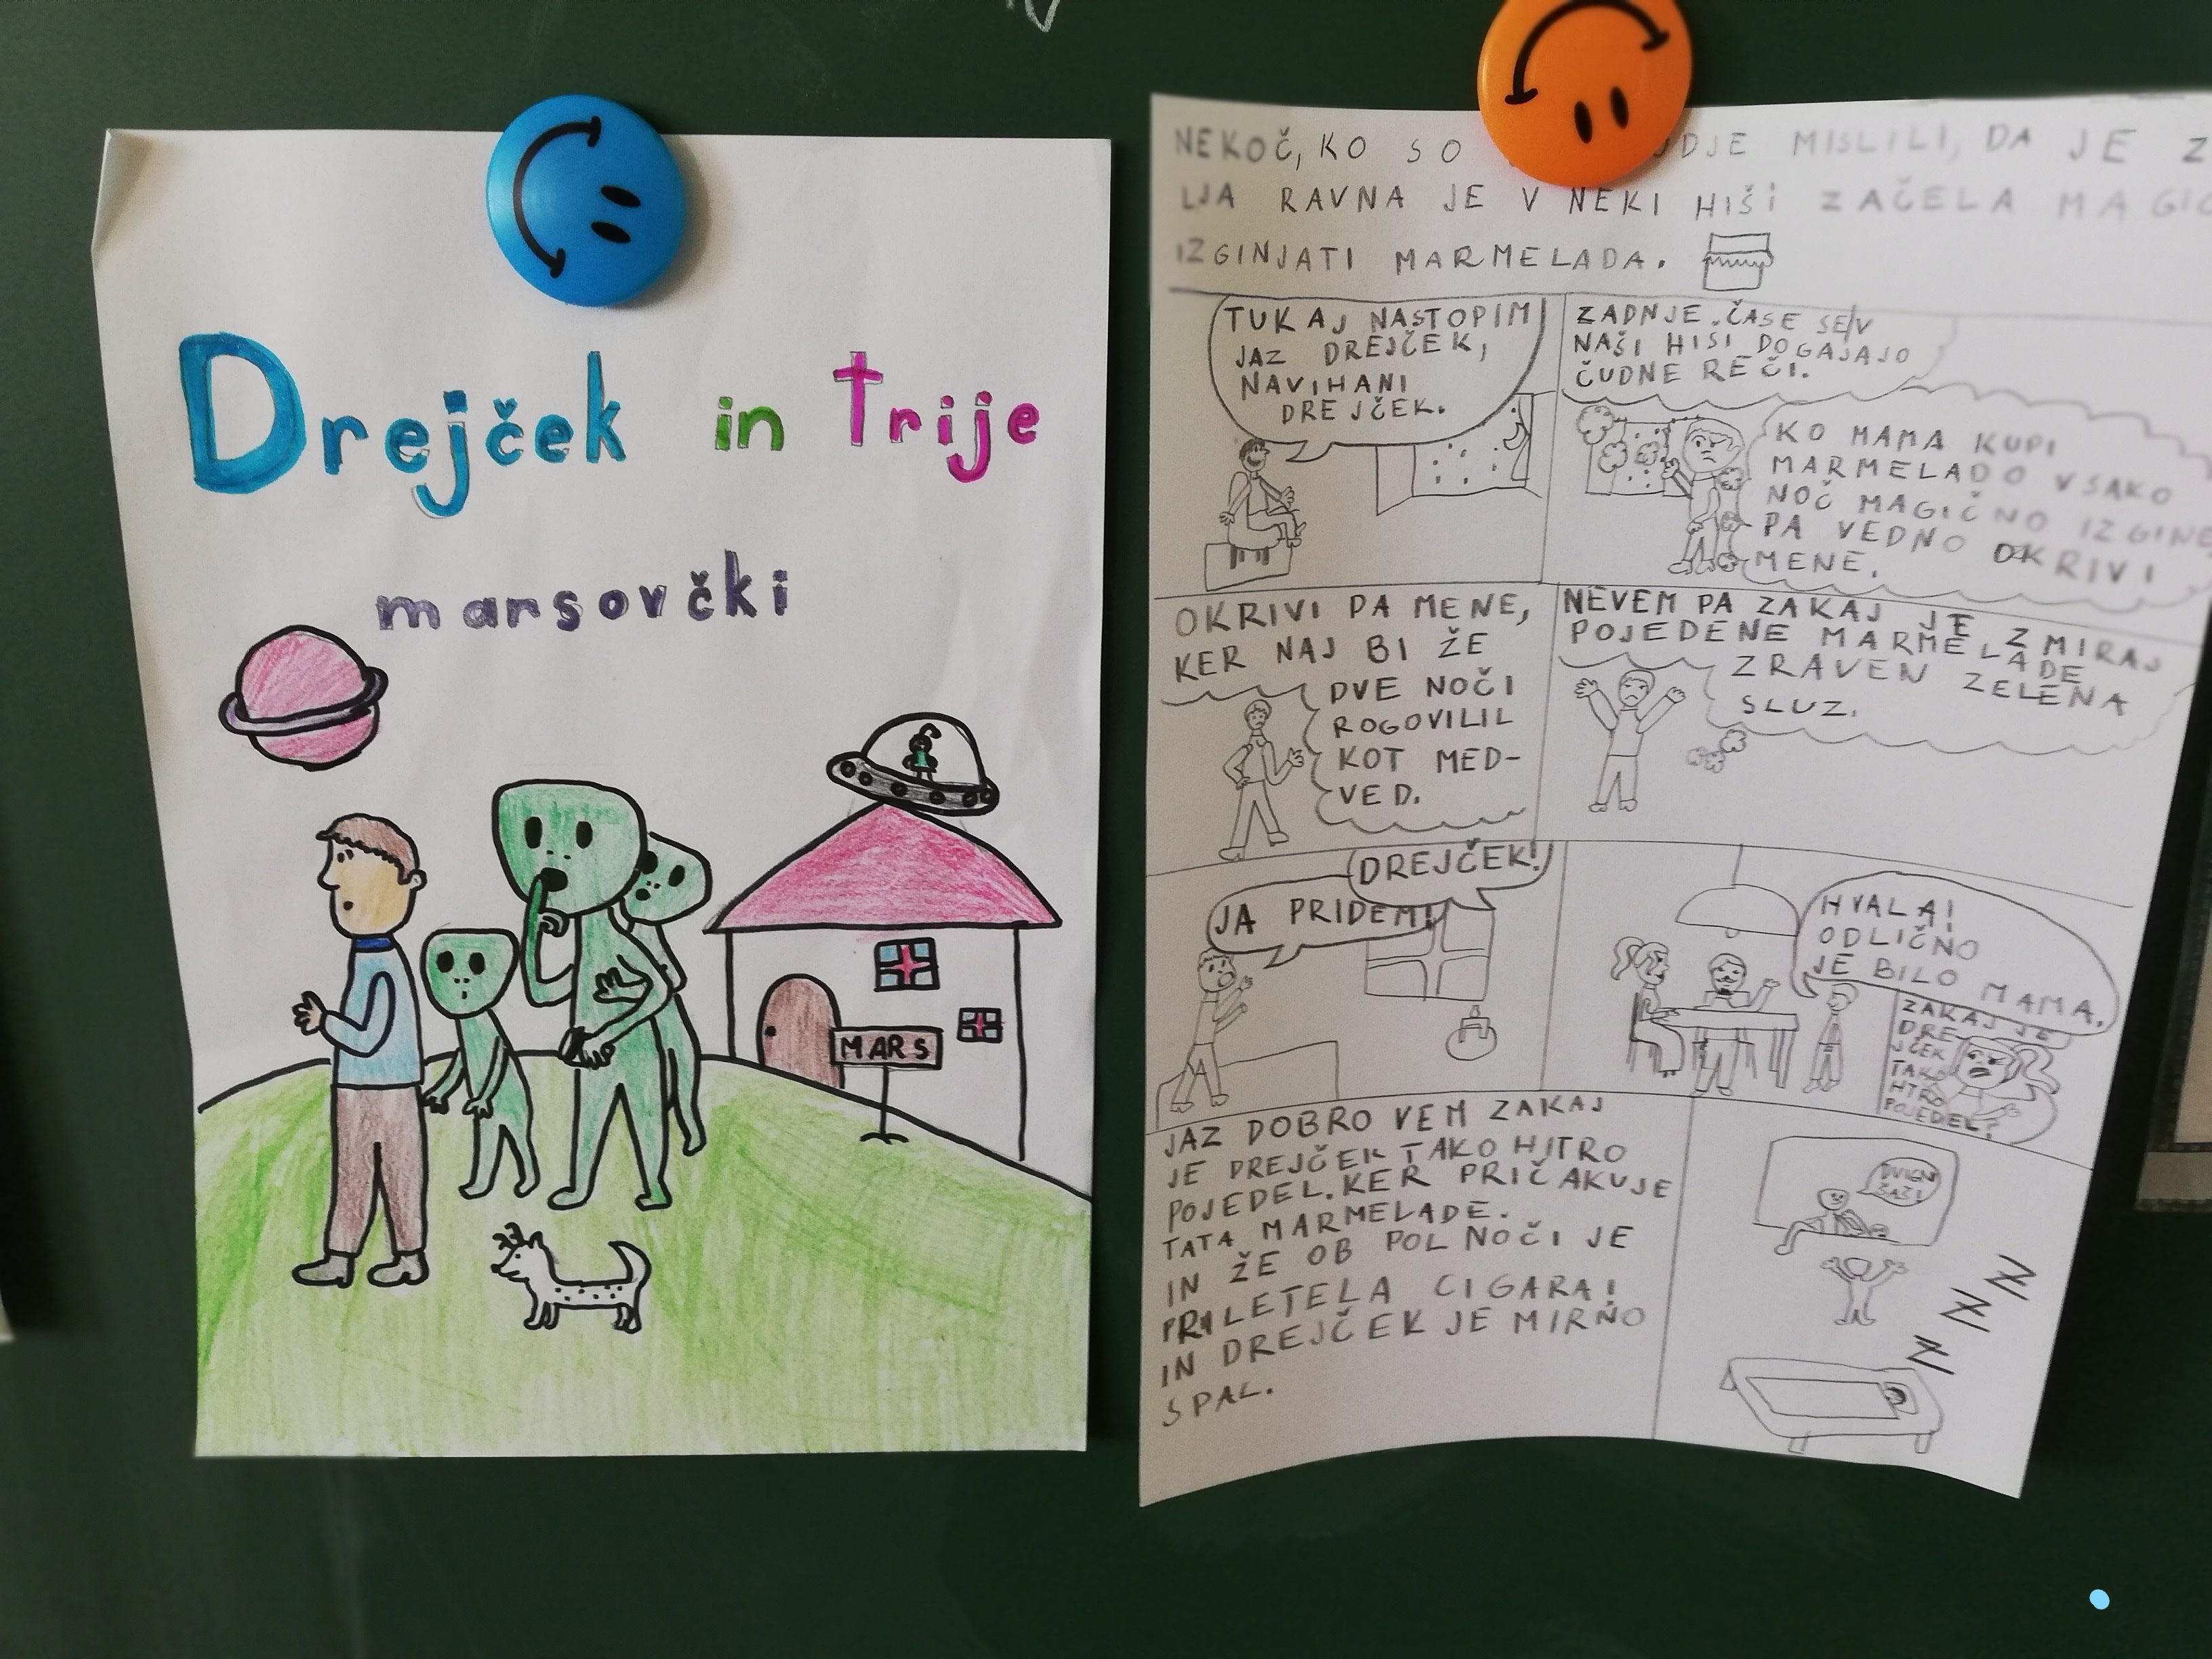 Drejček in trije
marsovčki
MARS
NEKOČ, KO SO MISLILI, DA JE
LJA RAVNA JE V NEKI HIŠI ZAČELA
IZGINJATI MARMELADA.
TUKAJ NASTOPIM
JAZ DREJČEK,
NAVIHANI
DREJČEK.
ZADNJE ČASE SE V
NAŠI HISI DOGAJAJO
ČUDNE REČI.
KO MAMA KUPI
MARMELADO VSAKO
NOČ MAGIČNO IZGINE
PA VEDNO OKRIVI
MENE.
OKRIVI PA MENE,
KER NAJ BI ŽE
DVE NOČI
ROGOVILIL
KOT MED-
VED.
NEVEM PA ZAKAJ JE ZMIRAJ
POJEDENE MARMELADE
ZRAVEN ZELENA
SLUZ.
DREJČEK!
JA PRIDEM!
HVALA!
ODLIČNO
JE BILO MAMA.
ZAKAJ JE
DRE-
JČEK
TAKO
HTRO
POJEDEL?
JAZ DOBRO VEM ZAKAJ
JE DREJČEK TAKO HITRO
POJEDEL. KER PRIČAKUJE
TATA MARMELADE.
IN ŽE OB POLNOČI JE
PRILETELA CIGARA!
IN DREJČEK JE MIRNO
SPAL.
Z
Z
Z